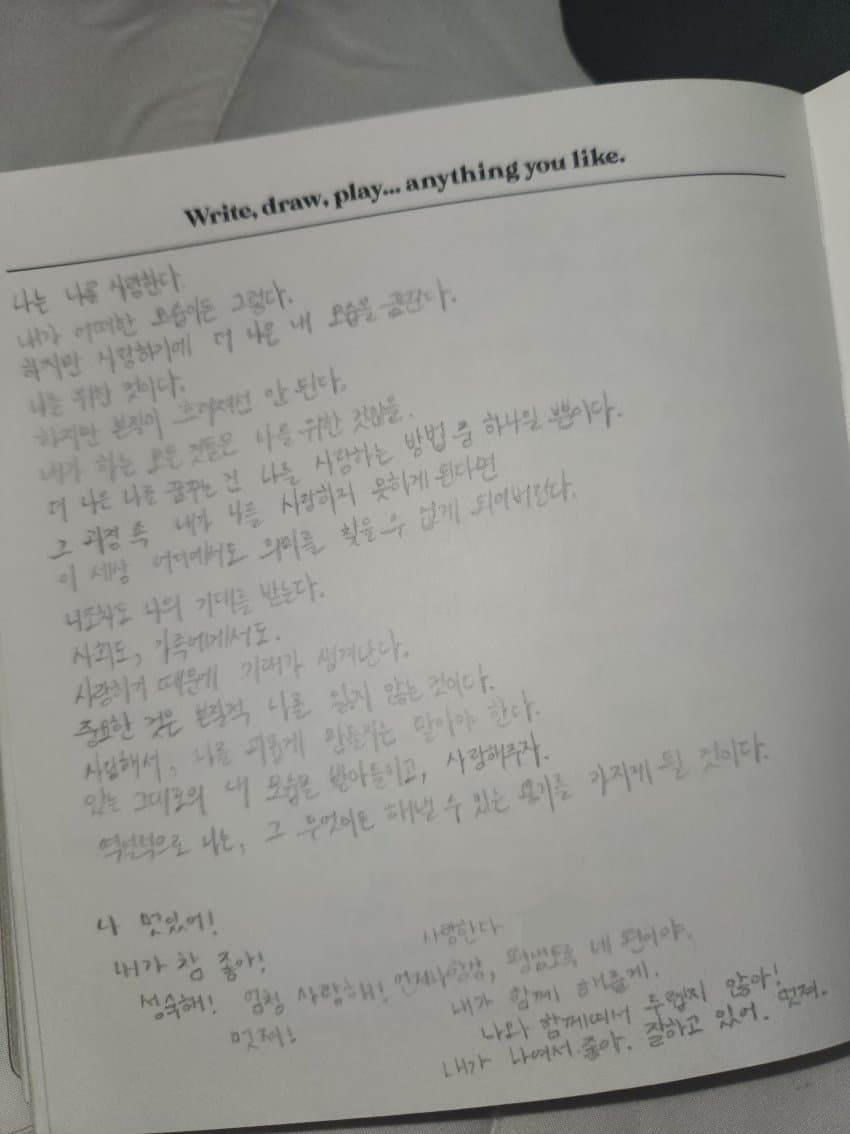 Write, draw, play... anything you like.
나는 나를 사랑한다.
내가 어떠한 모습이든 그렇다.
하지만 사랑하기에 더 나은 내 모습을 꿈꾼다.
나를 위한 것이다.
하지만 본질이 흐려져선 안 된다.
내가 하는 모든 것들은 나를 위한 것임을.
더 나은 나를 꿈꾸는 건 나를 사랑하는 방법 중 하나일 뿐이다.
그 과정 속 내가 나를 사랑하지 못하게 된다면
이 세상 어디에서도 의미를 찾을 수 없게 되어버린다.
나조차도 나의 기대를 받는다.
사회도, 가족에게서도.
사랑하기 때문에 기대가 생겨난다.
중요한 것은 본질적 나를 잃지 않는 것이다.
사랑해서, 나를 괴롭게 만들지는 말아야 한다.
있는 그대로의 내 모습을 받아들이고, 사랑해주자.
역설적으로 나는, 그 무엇이든 해낼 수 있는 용기를 가지게 될 것이다.
나 멋있어!
내가 참 좋아!
성숙해! 엄청 사랑해!
멋져!
사랑한다
언제나 항상, 평생토록 네 편이야.
내가 함께 해줄게.
나와 함께라서 두렵지 않아!
내가 나여서 좋아. 잘하고 있어. 멋져.